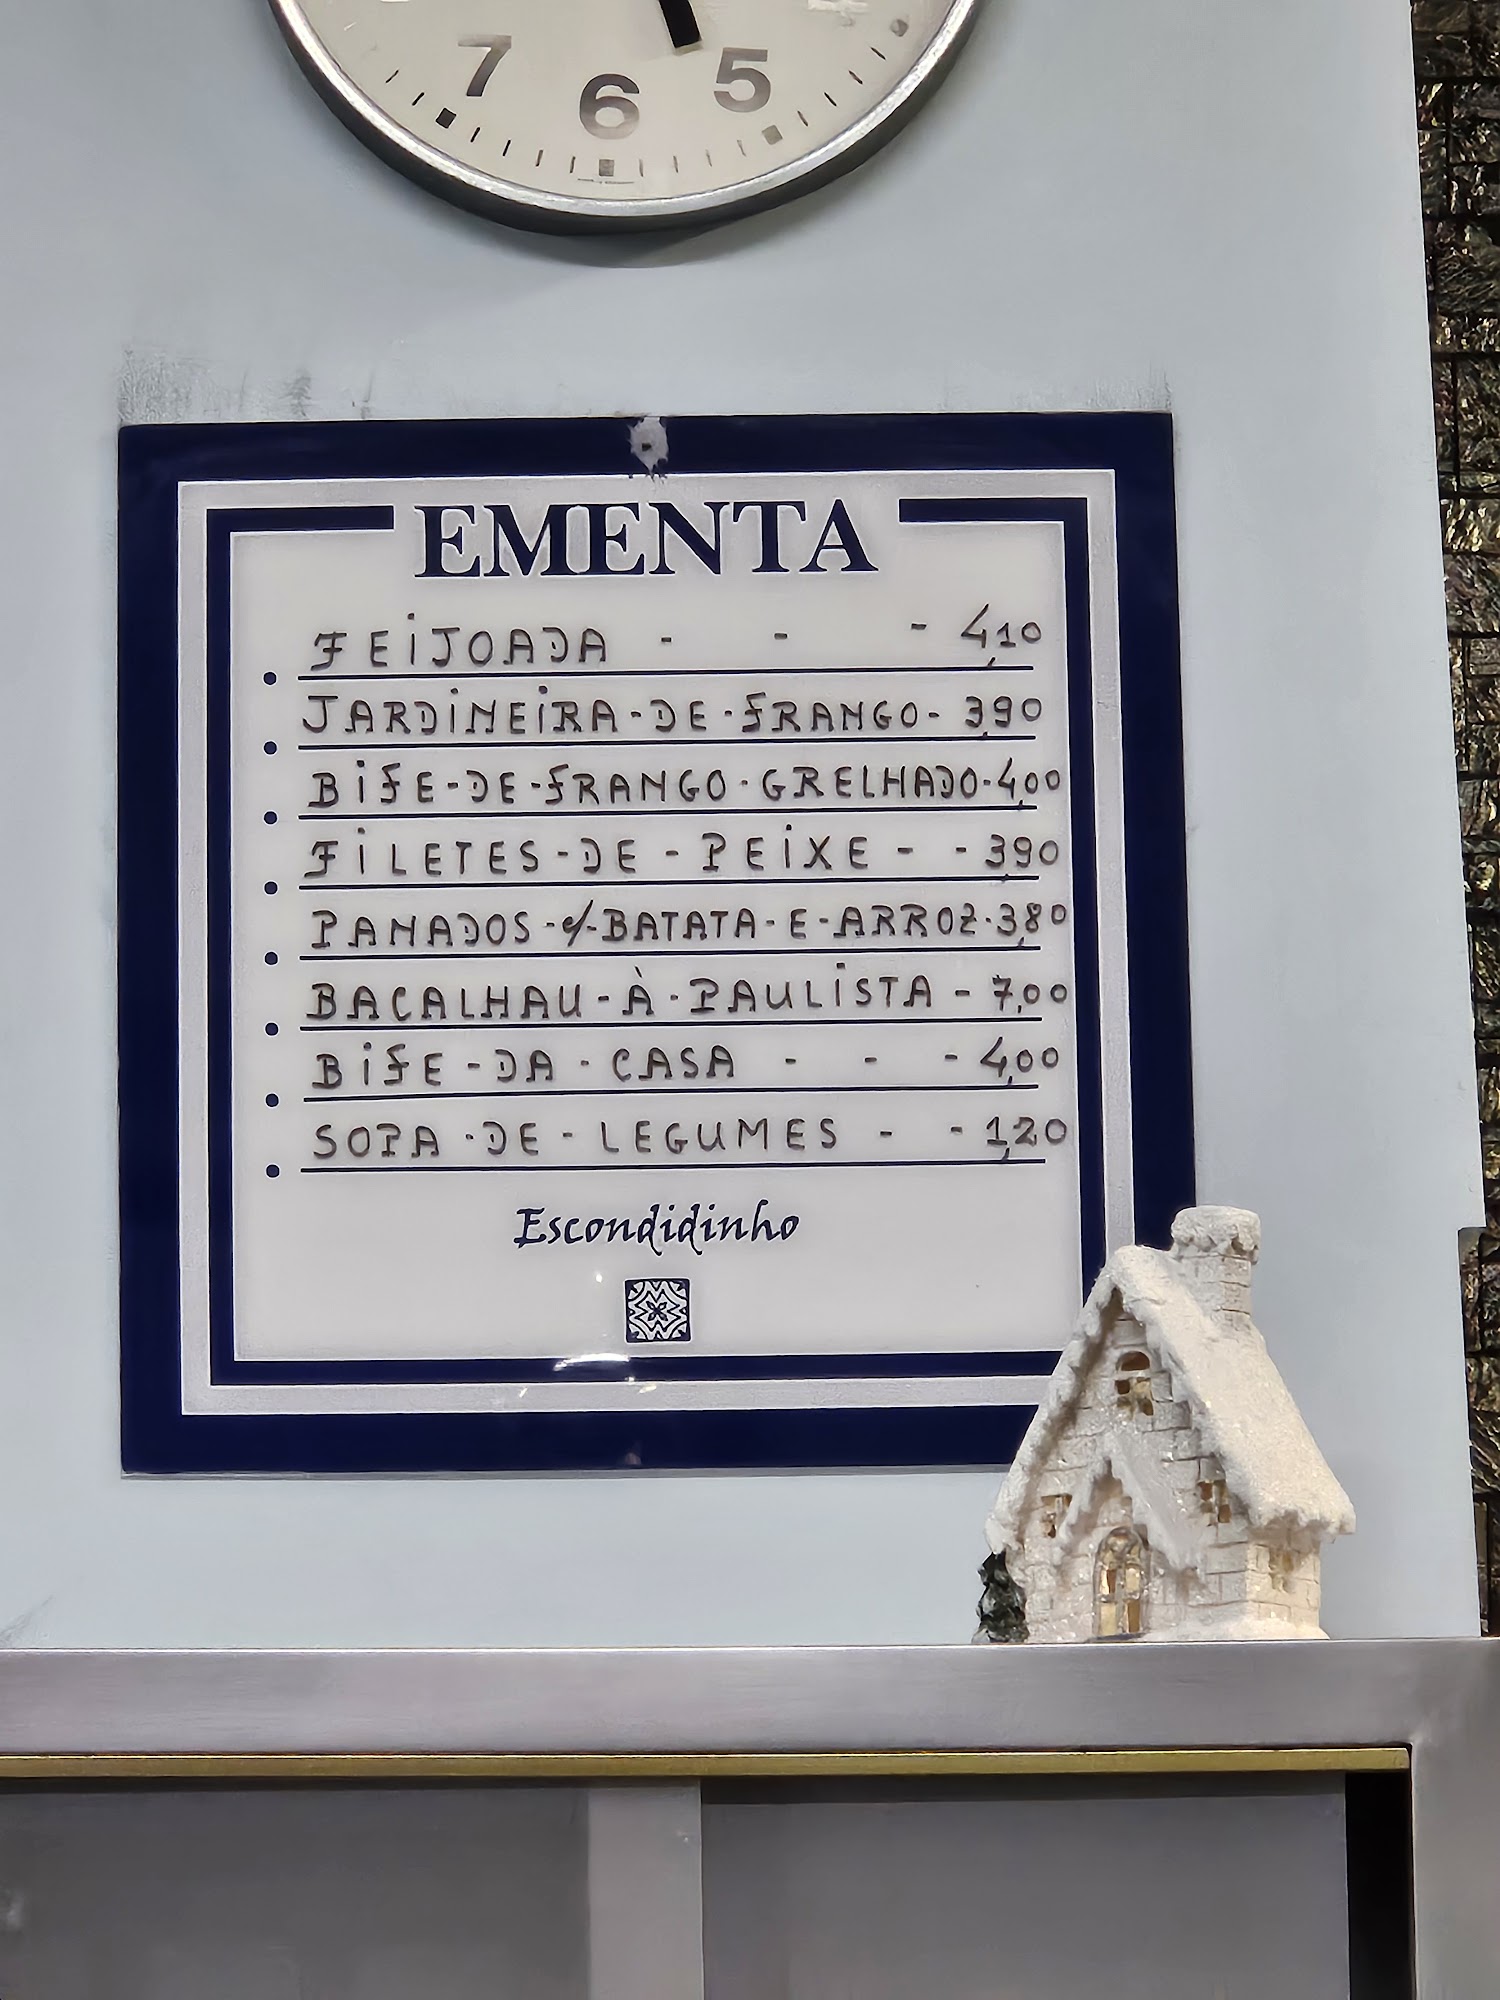 7 6 5
EMENTA
FEIJOADA - - - 4,10
JARDINEIRA-DE-FRANGO- 3,90
BIFE-DE-FRANGO-GRELHADO-4,00
FILETES-DE-PEIXE - - 3,90
PANADOS-c/-BATATA-E-ARROZ-3,80
BACALHAU-À-PAULISTA - 7,00
BIFE-DA-CASA - - - 4,00
SOPA-DE-LEGUMES - - 1,20
Escondidinho